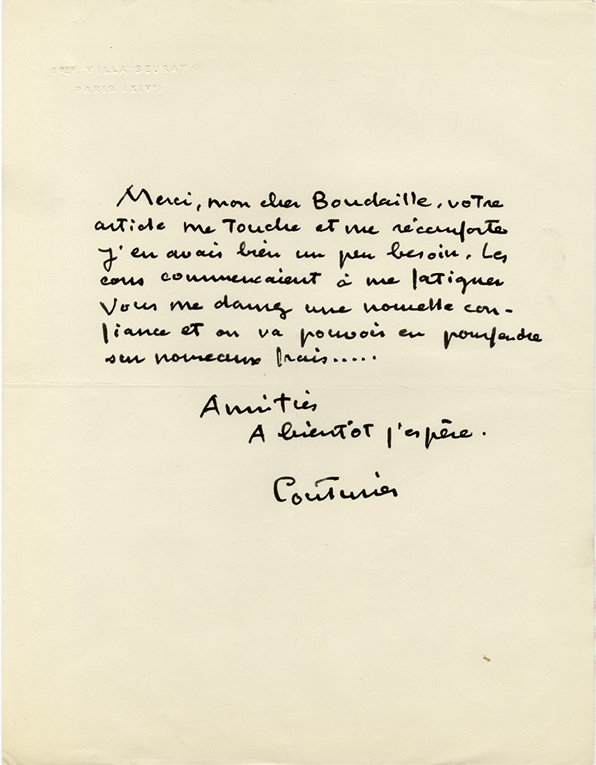 4TER, VILLA SEURAT
PARIS (XIVE)
Merci, mon cher Boudaille, votre
article me touche et me réconforte
J'en avais bien un peu besoin. Les
cons commencaient à me fatiguer
Vous me donnez une nouvelle con-
fiance et on va pouvoir en pourfendre
sur nouveaux frais.....
Amitiés
A bientôt j'espère.
Couturier